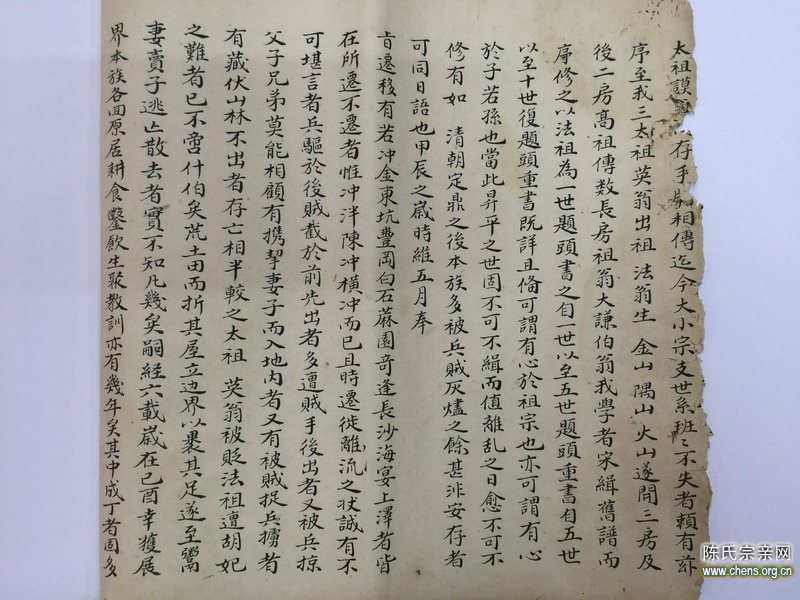 太祖謨存手相傳迄今大小宗支世系班〻不失者賴有蔀
序至我三太祖英翁出祖 法翁生 金山 隅山 火山遂開三房及
後二房高祖傳数長房祖翁大謙伯翁我學者宋緝舊譜而
序修之以法祖為一世題頭書之自一世以至五世題頭重書自五世
以至十世復題頭重書既詳且俻可謂有心於祖宗也亦可謂有心
於子若孫也當此昇平之世固不可不緝而值離乱之日愈不可不
修有如 清朝定鼎之後本族多被兵賊灰燼之餘甚非安存者
可同日語也甲辰之歲時維五月奉
旨遷移有若冲金東坑豐岡白石蔴園奇逢長沙海宴上澤者皆
在所遷不遷者惟冲泮陳冲横冲而已且時遷徙離流之状誠有不
可堪言者兵驅於後賊截於前先出者多遭賊手後出者又被兵掠
父子兄弟莫能相顧有携挈妻子而入地内者又有被賊捉兵擄者
有藏伏山林不出者存亡相半較之太祖 英翁被貶法祖遭胡妃
之難者已不啻什伯矣荒土田而折其屋立边界以裹其足遂至鬻
妻賣子逃亡散去者實不知凡幾矣嗣経六載歲在己酉幸獲展
界本族各囬原居耕食鑿飲生聚教訓亦有幾年矣其中成丁者固多
陈氏宗亲网
www.chens.org.cn